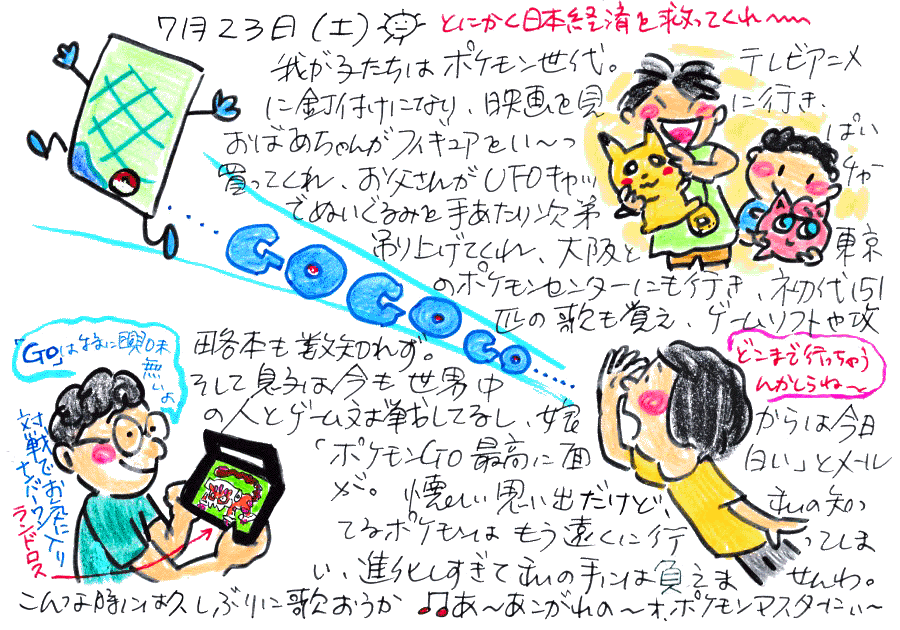 7月23日(土) とにかく日本経済を救ってくれ~
我が子たちはポケモン世代。テレビアニメ
に釘付けになり、映画を見に行き、
おばあちゃんがフィギュアをい~っぱい
買ってくれ、お父さんがUFOキャッチャー
でぬいぐるみを手あたり次第
吊り上げてくれ、大阪と東京
のポケモンセンターにも行き、初代151
匹の歌も覚え、ゲームソフトや攻
略本も数知れず。
そして息子は今も世界中
の人とゲーム対戦してるし、娘からは今日
「ポケモンGO最高に面白い」とメール
が。懐しい思い出だけど、私の知っ
てるポケモンはもう遠くに行ってしま
い、進化しすぎて私の手には負えませんわ。
こんな時には久しぶりに歌おうか ♫あ~あこがれの~オ、ポケモンマスターにぃ~
GOGOGO
「GO」は特に興味
無いよ
対戦でお気に入り
ナンバーワン
ランドロス
どこまで行っちゃう
んかしらね~